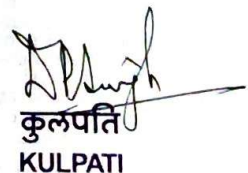 DPSingh
कुलपति
KULPATI